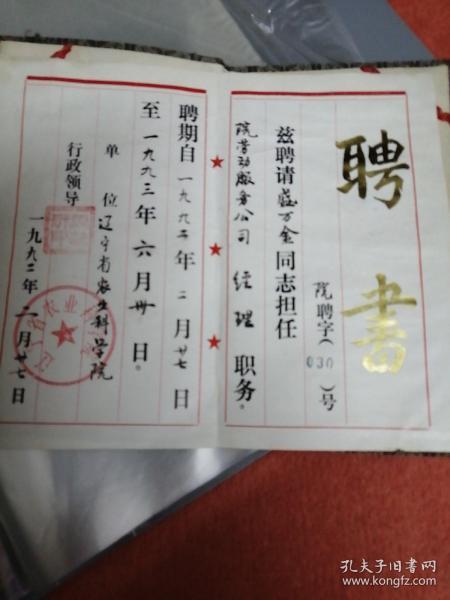 聘书
院聘字(030)号
兹聘请盛万金同志担任
院劳动服务公司 经理 职务。
聘期自一九九二年二月廿七日
至一九九三年六月卅日。
单位辽宁省农业科学院
行政领导
一九九二年二月廿七日
孔夫子旧书网
www.kongfz.com